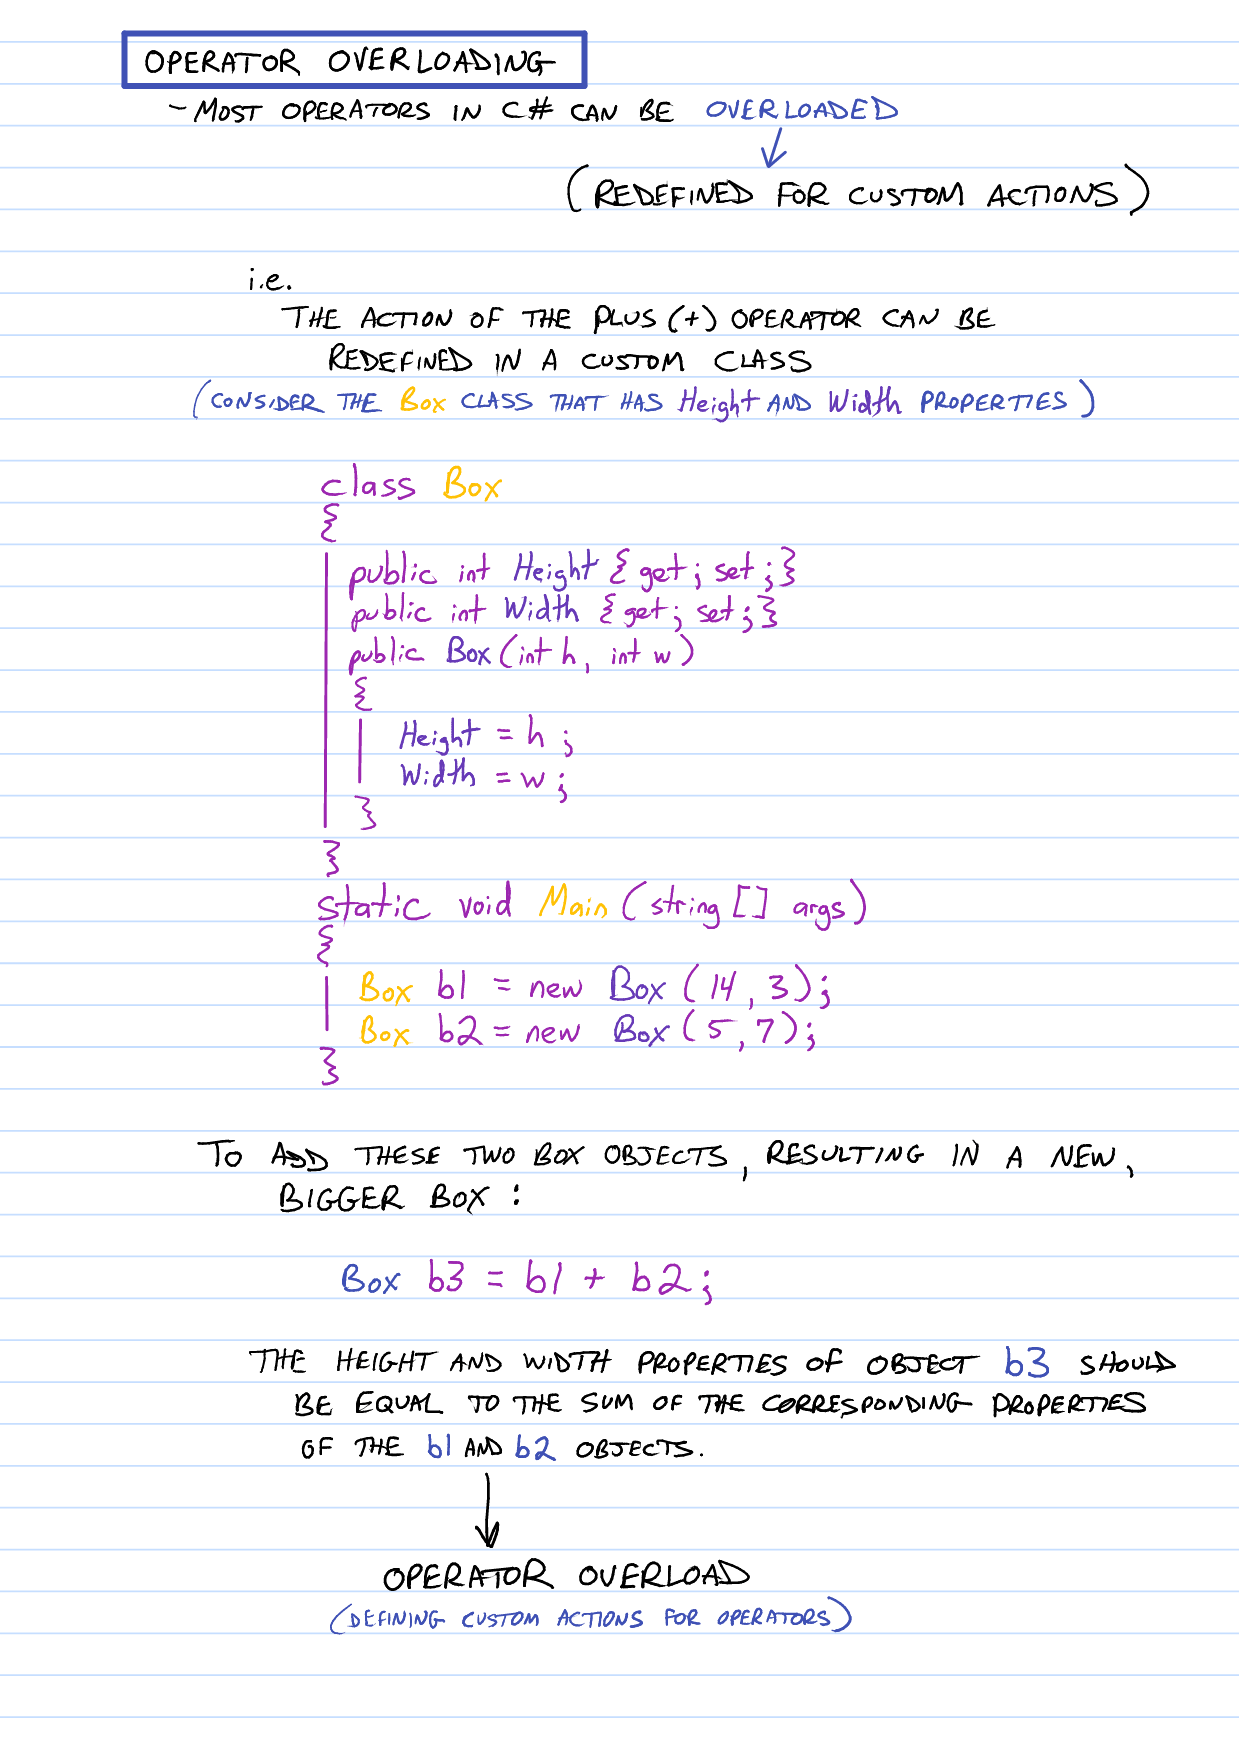 OPERATOR OVERLOADING
- MOST OPERATORS IN C# CAN BE OVERLOADED
(REDEFINED FOR CUSTOM ACTIONS)
i.e.
THE ACTION OF THE PLUS (+) OPERATOR CAN BE
REDEFINED IN A CUSTOM CLASS
(CONSIDER THE Box CLASS THAT HAS Height AND Width PROPERTIES)
class Box
{
public int Height { get; set; }
public int Width { get; set; }
public Box (int h, int w)
{
Height = h;
Width = w;
}
}
static void Main (string [] args)
{
Box b1 = new Box (14, 3);
Box b2 = new Box (5, 7);
}
TO ADD THESE TWO BOX OBJECTS, RESULTING IN A NEW,
BIGGER BOX:
Box b3 = b1 + b2;
THE HEIGHT AND WIDTH PROPERTIES OF OBJECT b3 SHOULD
BE EQUAL TO THE SUM OF THE CORRESPONDING PROPERTIES
OF THE b1 AND b2 OBJECTS.
OPERATOR OVERLOAD
(DEFINING CUSTOM ACTIONS FOR OPERATORS)